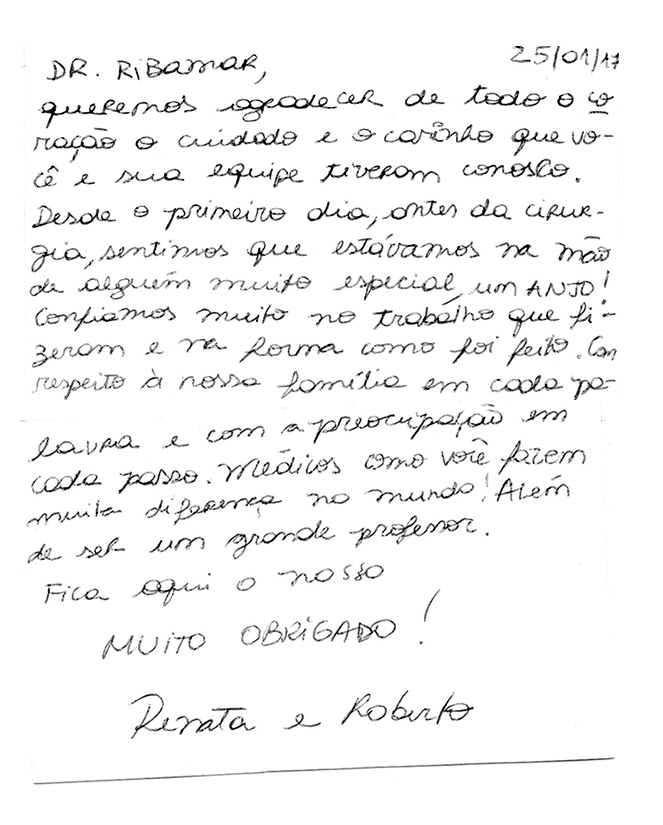 DR. RIBAMAR, 25/01/17
queremos agradecer de todo o co
ração o cuidado e o carinho que vo-
cê e sua equipe tiveram conosco.
Desde o primeiro dia, antes da cirur-
gia, sentimos que estávamos na mão
de alguém muito especial, um ANJO!
Confiamos muito no trabalho que fi-
zeram e na forma como foi feito. Com
respeito à nossa família em cada pa-
lavra e com a preocupação em
cada passo. Médicos como você fazem
muita diferença no mundo! Além
de ser um grande professor.
Fica aqui o nosso
MUITO OBRIGADO!
Renata e Roberto